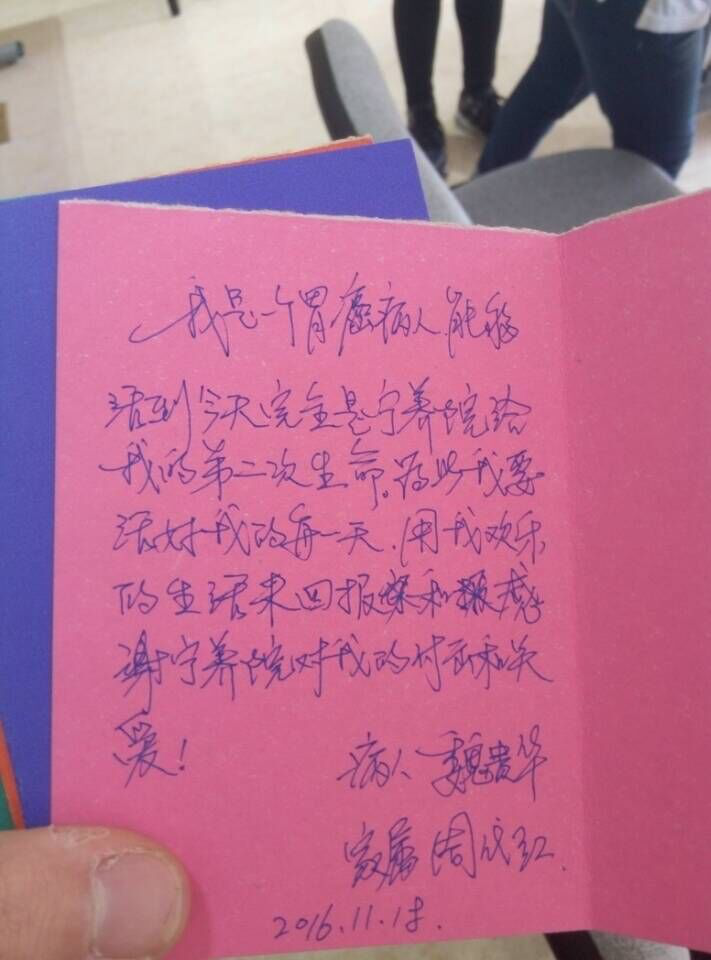 我是一个胃癌病人.能够
活到今天完全是宁养院给
我的第二次生命。为此我要
活好我的每一天.用我欢乐
的生活来回报和感
谢宁养院对我的付出和关
爱!
病人 魏贵华
家属 周成红.
2016.11.18.